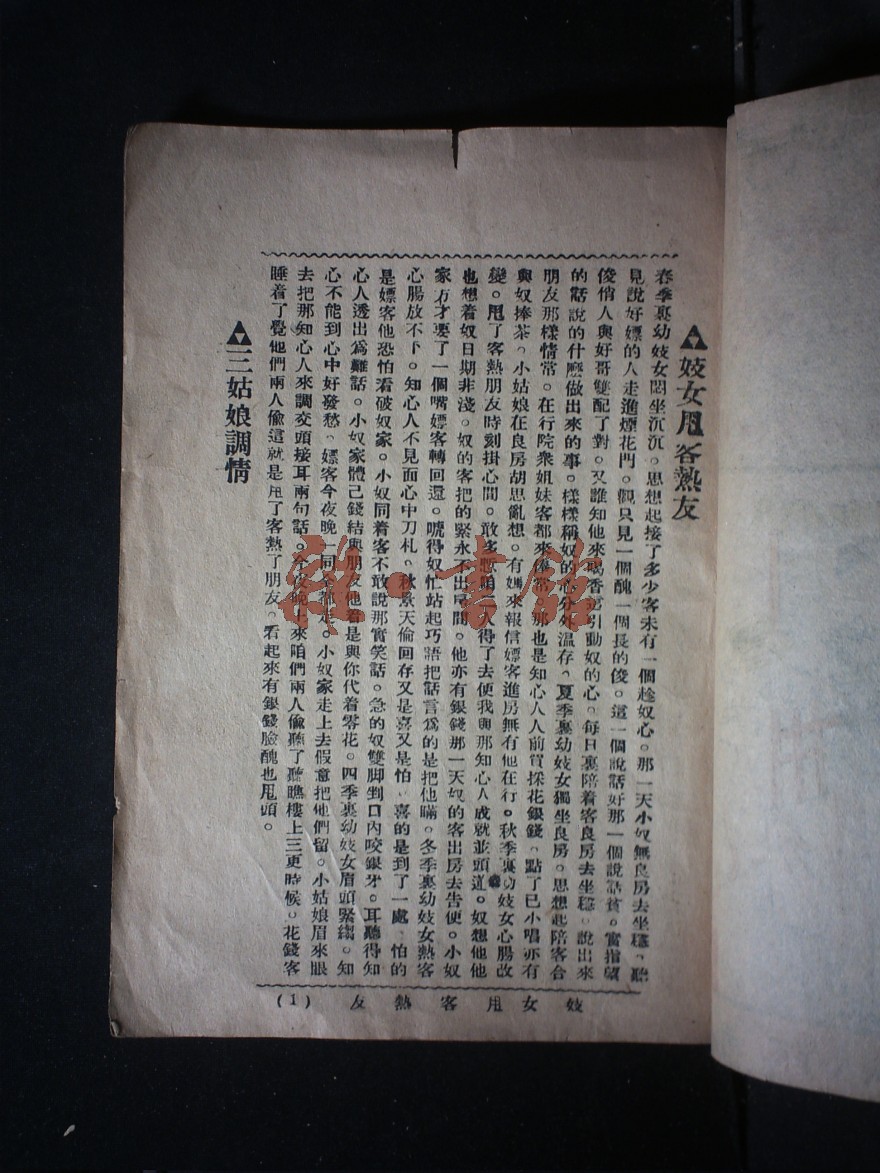 ▲妓女甩客熱友
春季裏幼妓女悶坐沉沉。思想起接了多少客未有一個趁奴心。那一天小奴無良房去坐穩、聽
見說好嫖的人走進煙花門。觀只見一個醜一個長的俊。這一個說話好那一個說話貧。實指望
俊俏人與好哥雙配了對。又誰知他來喝香茗引動奴的心。每日裏陪着客良房去坐穩。說出來
的話說的什麽做出來的事。樣樣稱奴的心分外溫存。夏季裏幼妓女獨坐良房。思想起陪客合
朋友那樣情常。在行院衆姐妹客都來俸常。那也是知心人人前買採花銀錢、點了已小唱亦有
與奴捧茶。小姑娘在良房胡思亂想。有媽來報信嫖客進房無有他在行。秋季裏幼妓女心腸改
變。甩了客熱朋友時刻掛心間。敢多 咱二人得了去便我與那知心人成就並頭蓮。奴想他他
也想着奴日期非淺。奴的客把的緊永不出 間。他亦有銀錢那一天奴的客出房去告便。小奴
家方才要了一個嘴嫖客轉回還。唬得奴忙站起巧語把話言爲的是把他瞞。冬季裏幼妓女熱客
心腸放不下。知心人不見面心中刀札。秋景天倫回存又是喜又是怕、喜的是到了一處、怕的
是嫖客他恐怕看破奴家。小奴同着客不敢說那實笑話。急的奴雙脚跺口內咬銀牙。耳聽得知
心人透出爲難話。小奴家體己錢結與朋友他看是與你代着零花。四季裏幼妓女眉頭緊縐。知
心不能到心中好發愁、嫖客今夜晚一同 走。小奴家走上去假意把他們留。小姑娘眉來眼
去把那知心人來調交頭接耳兩句話。今夜晚上來咱們兩人偸聽了聽瞧樓上三更時候。花錢客
睡着了覺他們兩人偸這就是甩了客熱了朋友。看起來有銀錢臉醜也甩頭。
▲三姑娘調情
妓女甩客熱友 (1)
雜·書館